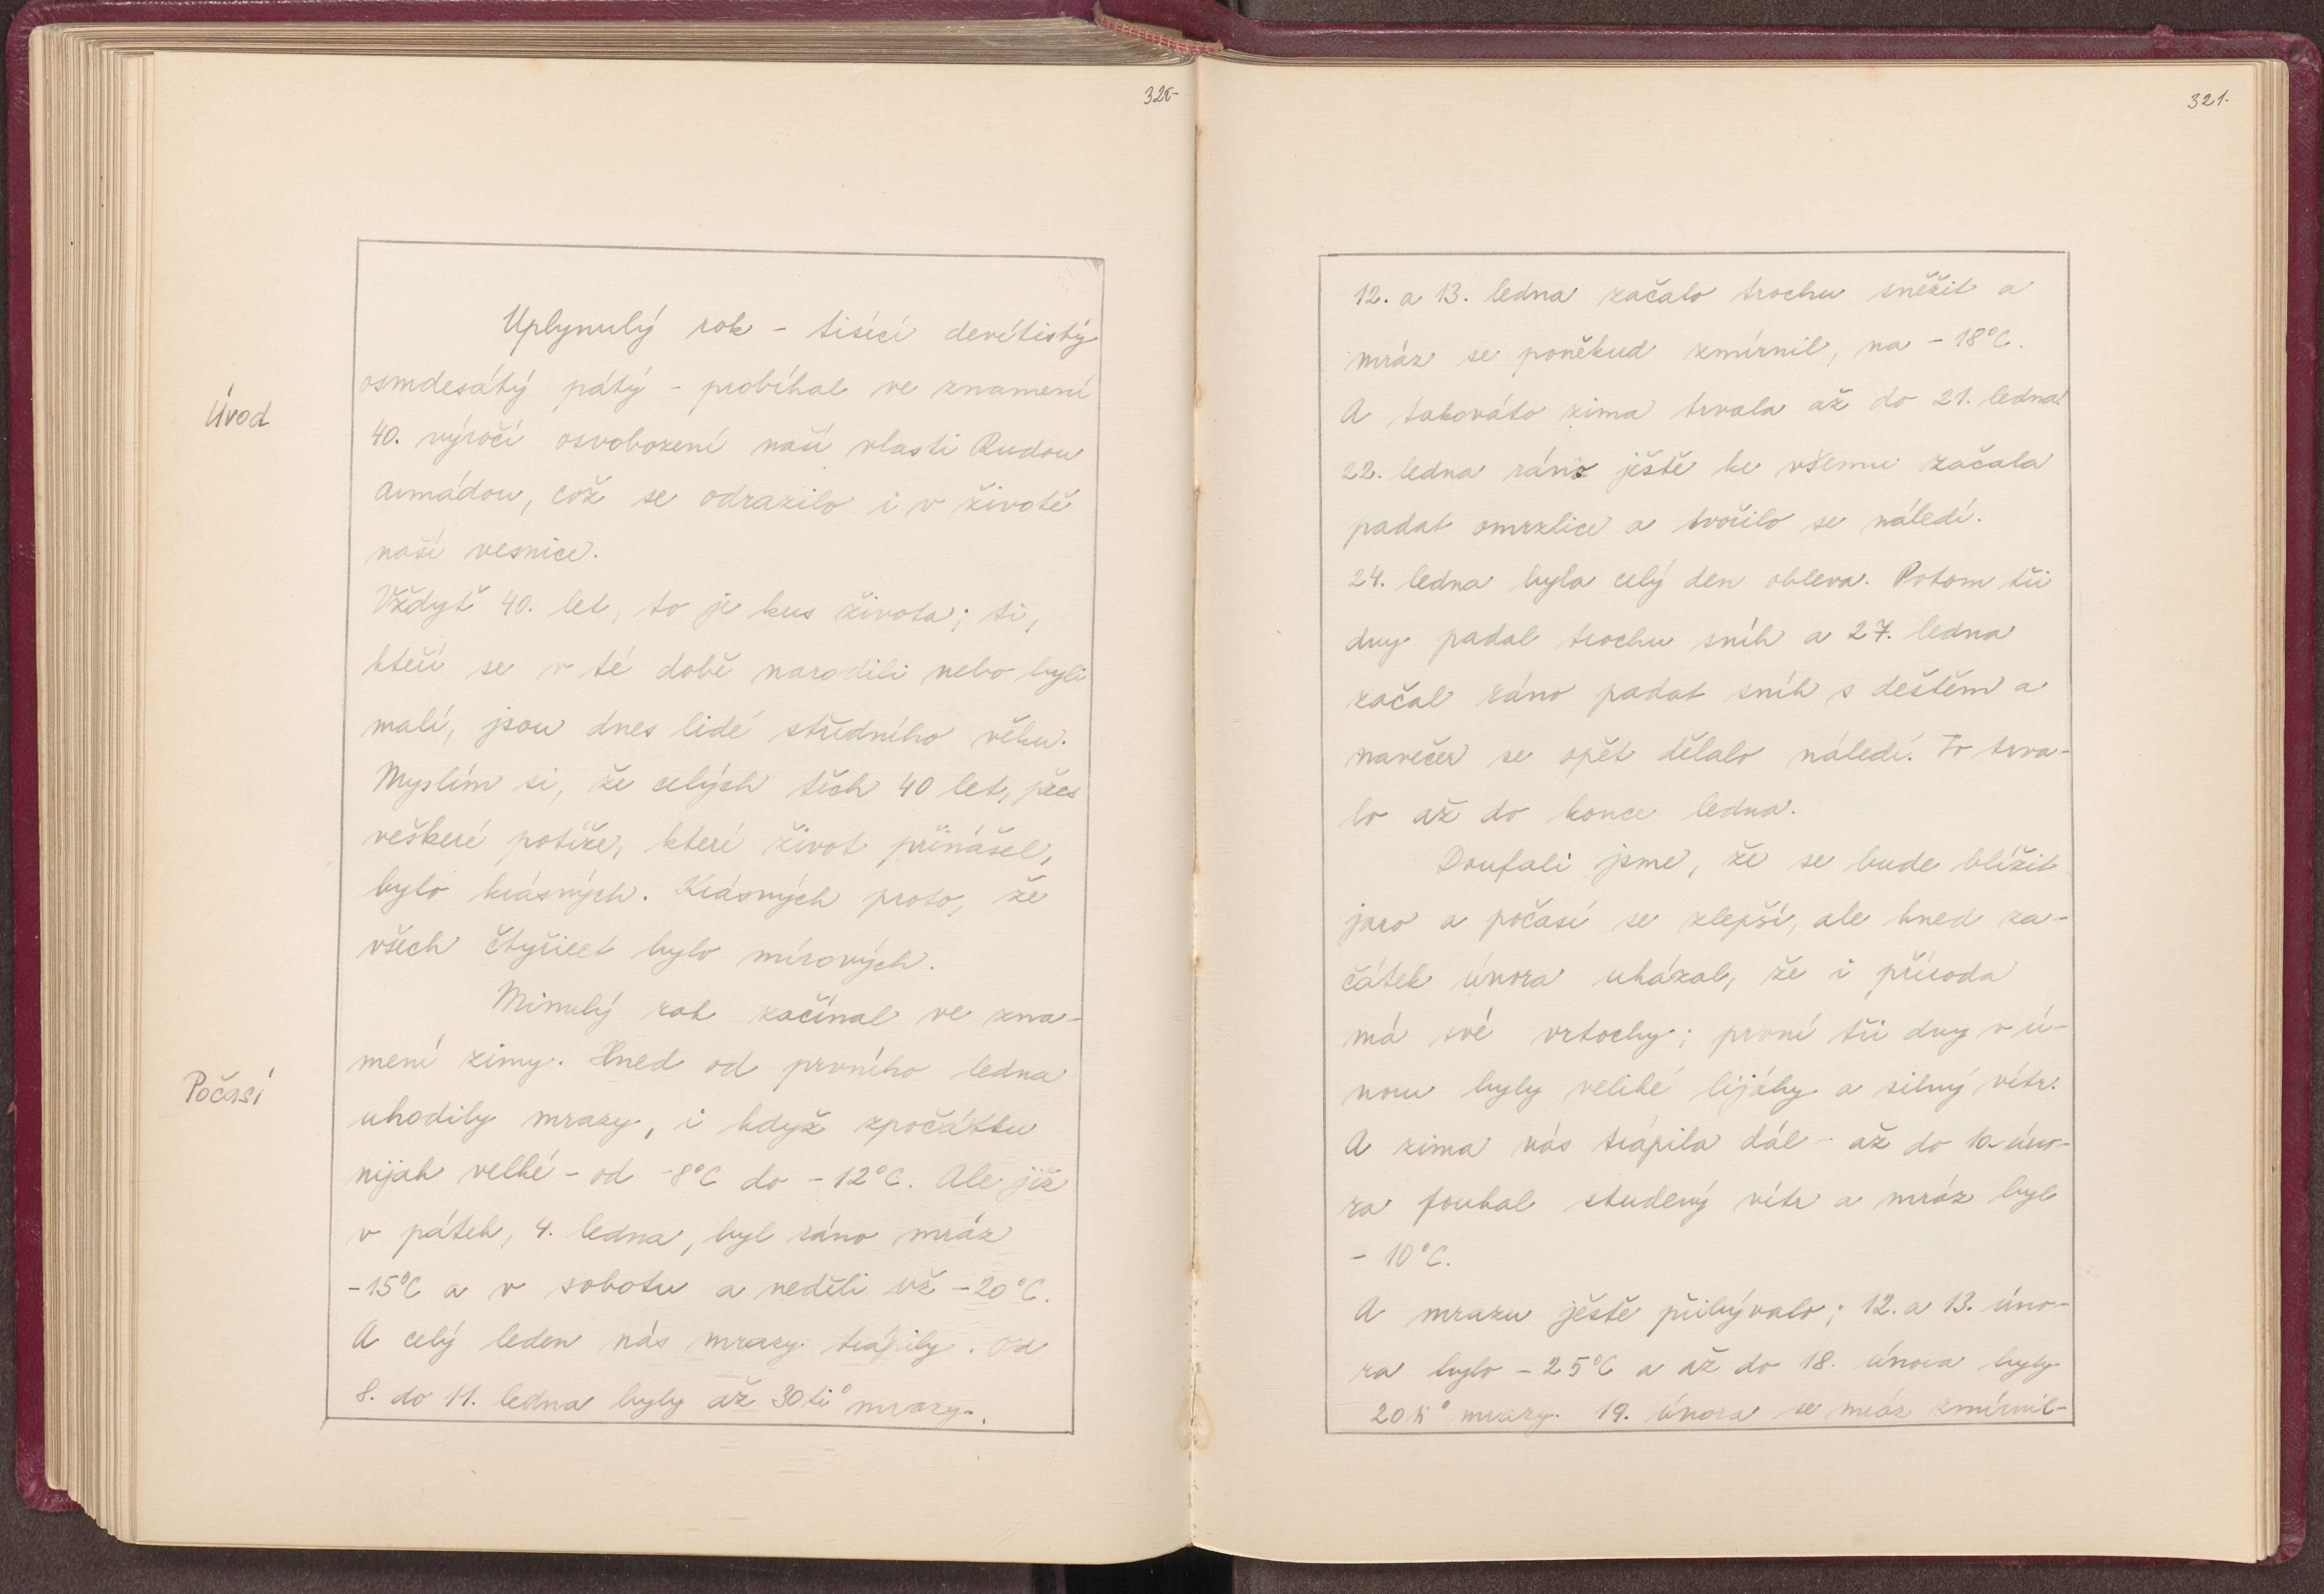 320-
Úvod
Uplynulý rok - tisící devítistý
osmdesátý pátý - probíhal ve znamení
40. výročí osvobození naší vlasti Rudou
armádou, což se odrazilo i v životě
naší vesnice.
Vždyť 40. let, to je kus života; ti,
kteří se v té době narodili nebo byli
malí, jsou dnes lidé středního věku.
Myslím si, že celých těch 40 let, přes
veškeré potíže, které život přinášel,
bylo krásných. Krásných proto, že
všech čtyřicet bylo mírových.
Počasí
Minulý rok začínal ve zna-
mení zimy. Hned od prvního ledna
uhodily mrazy, i když zpočátku
nijak velké - od -8°C do -12°C. Ale již
v pátek, 4. ledna, byl ráno mráz
-15°C a v sobotu a neděli už -20°C.
A celý leden nás mrazy trápily. Od
8. do 11. ledna byly až 30ti° mrazy.
321.
12. a 13. ledna začalo trochu sněžit a
mráz se poněkud zmírnil, na -18°C.
A takováto zima trvala až do 21. ledna!
22. ledna ráno ještě ke všemu začala
padat omrzlice a tvořilo se náledí.
24. ledna byla celý den obleva. Potom tři
dny padal trochu sníh a 27. ledna
začal ráno padat sníh s deštěm a
navečer se opět dělalo náledí. To trva-
lo až do konce ledna.
Doufali jsme, že se bude blížit
jaro a počasí se zlepší, ale hned za-
čátek února ukázal, že i příroda
má své vrtochy; první tři dny v ú-
noru byly veliké lijáky a silný vítr.
A zima nás trápila dál - až do 10. úno-
ra foukal studený vítr a mráz byl
- 10°C.
A mrazu ještě přibývalo; 12. a 13. úno-
ra bylo -25°C a až do 18. února byly
20ti° mrazy. 19. února se mráz zmírnil-